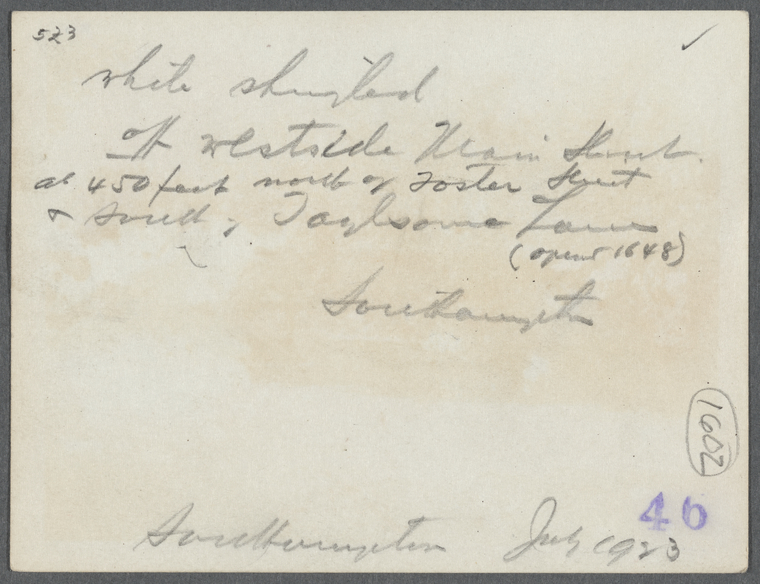 523
white shingled
off westside Main Street.
at 450 feet north of Foster Street
& South of Toylsome Lane
(open 1648)
Southampton
1602
46
Southampton July 1923